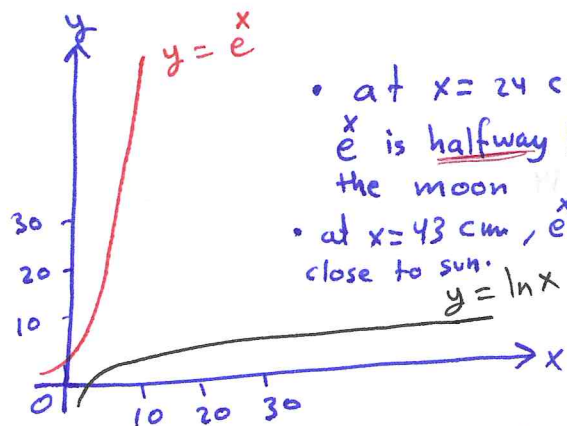 y
y = e^x
• at x = 24 c
e^x is halfway
the moon
• at x = 43 cm, e^x
close to sun.
y = ln x
30
20
10
x
0 10 20 30